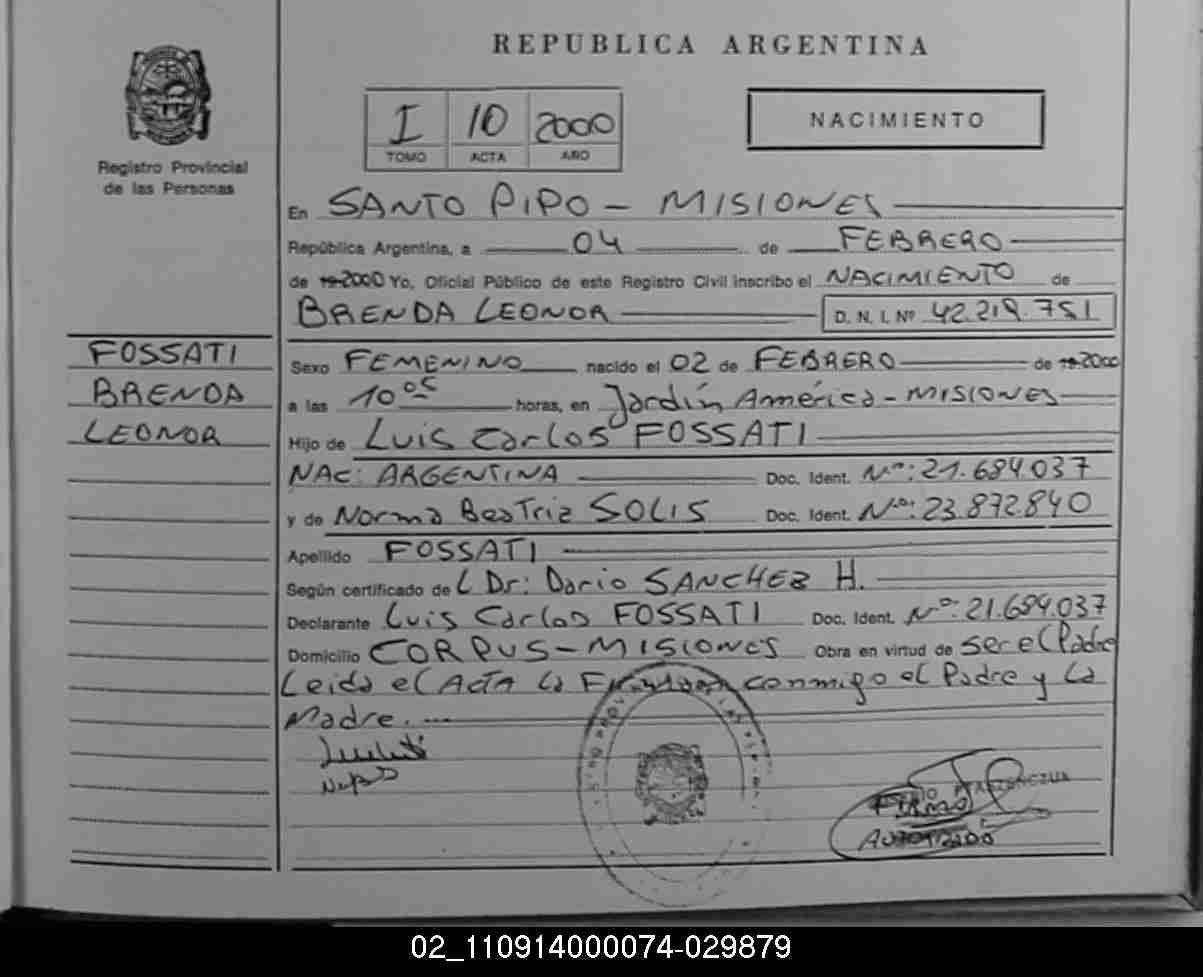 REPUBLICA ARGENTINA
Registro Provincial
de las Personas
I 10 2000
TOMO ACTA AÑO
NACIMIENTO
En SANTO PIPO - MISIONES
República Argentina, a 04 de FEBRERO
de 19 2000 Yo, Oficial Público de este Registro Civil inscribo el NACIMIENTO de
BRENDA LEONOR D. N. I. Nº 42.219.751
FOSSATI
BRENDA
LEONOR
Sexo FEMENINO nacido el 02 de FEBRERO de 19 2000
a las 10 05 horas, en Jardín América - MISIONES
Hijo de Luis Carlos FOSSATI
NAC: ARGENTINA Doc. Ident. Nº: 21.684.037
y de Norma Beatriz SOLIS Doc. Ident. Nº: 23.872.840
Apellido FOSSATI
Según certificado de L Dr: Dario SANCHEZ H.
Declarante Luis Carlos FOSSATI Doc. Ident. Nº: 21.684.037
Domicilio CORPUS - MISIONES Obra en virtud de ser el Padre
Leida el ACTA la Firman conmigo el Padre y La
Madre. ---
FIRMA
AUTORIZADO
02_110914000074-029879